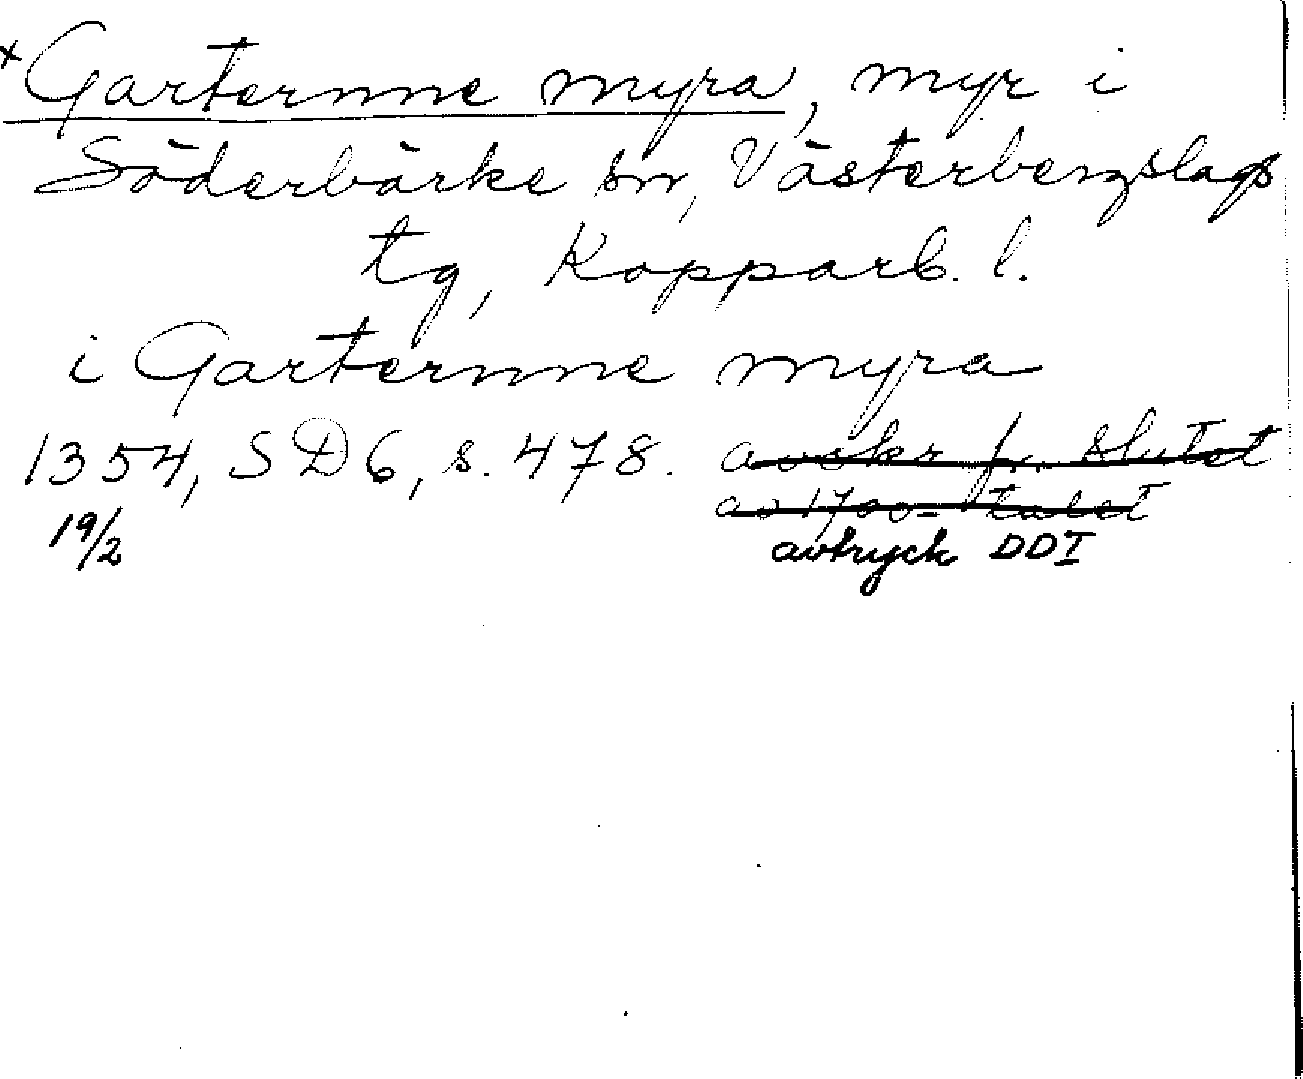 x Garternne myra, myr i
Söderbärke sn, Västerbergslags
tg, Kopparb. l.
i Garternne myra
1354, SD 6, s. 478. avskr fr. slutet
19/2 av 1700-talet
avtryck DD I